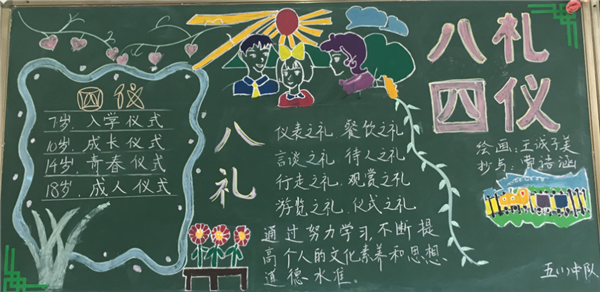 八礼
四仪
四仪
7岁,入学仪式
10岁,成长仪式
14岁,青春仪式
18岁,成人仪式
八礼
仪表之礼 餐饮之礼
言谈之礼 待人之礼
行走之礼 观赏之礼
游览之礼 仪式之礼
通过努力学习,不断提
高个人的文化素养和思想
道德水准。
绘画:王诚子美
抄写:黄诗涵
五(1)中队